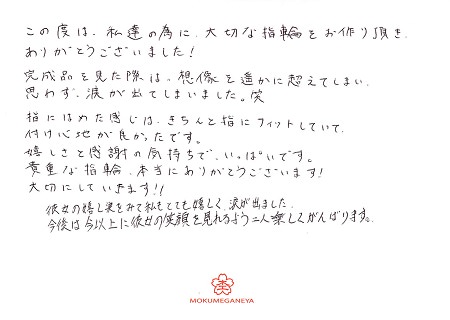 この度は、私達の為に、大切な指輪をお作り頂き、
ありがとうございました!
完成品を見た際は。想像を遥かに超えてしまい、
思わず、涙が出てしまいました。笑
指にはめた感じは、きちんと指にフィットしていて、
付け心地が良かったです。
嬉しさと感謝の気持ちで、いっぱいです。
貴重な指輪、本当にありがとうございます!
大切にしていきます!!
彼女の嬉し涙をみて私もとても嬉しく、涙が出ました。
今後は今以上に彼女の笑顔を見れるよう二人楽しくがんばります。
MOKUMEGANEYA